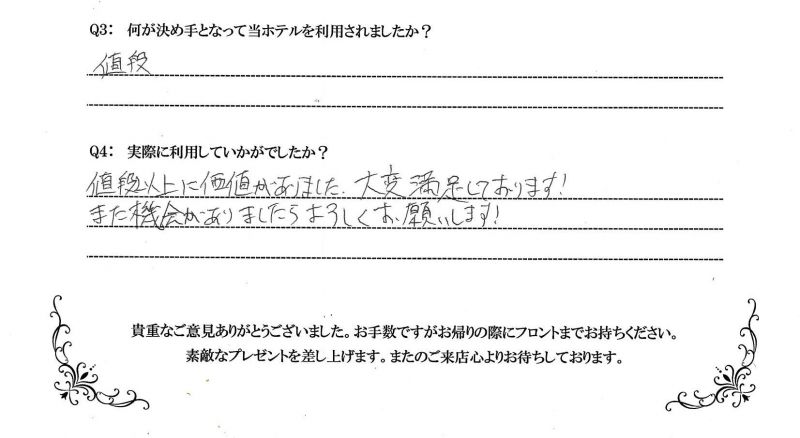 Q3: 何が決め手となって当ホテルを利用されましたか？
値段
Q4: 実際に利用していかがでしたか？
値段以上に価値がありました。大変満足しております!
また機会がありましたらよろしくお願いします!
貴重なご意見ありがとうございました。お手数ですがお帰りの際にフロントまでお持ちください。
素敵なプレゼントを差し上げます。またのご来店心よりお待ちしております。